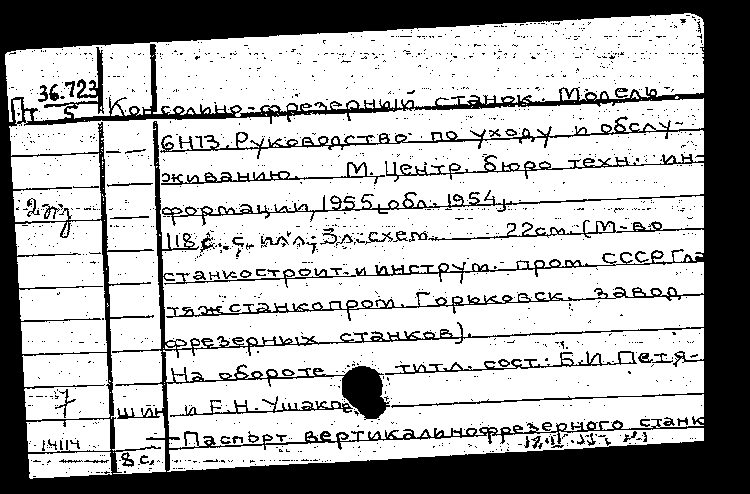 36.723
Пт 5 Консольно-фрезерный станок. Модель
6Н13. Руководство по уходу и обслу-
живанию. М., Центр. бюро техн. ин-
2 формации, 1955, обл. 1954.
118 с. с илл.; 3 л. схем. 22 см. (М-во
станкостроит. и инструм. пром. СССР. Гла
тяжстанкопром. Горьковск. завод
фрезерных станков).
На обороте тит. л. сост.: Б.И. Петя-
7 шин и Е.Н. Ушаков
14114 — Паспорт вертикалинофрезерного станк
8 с.